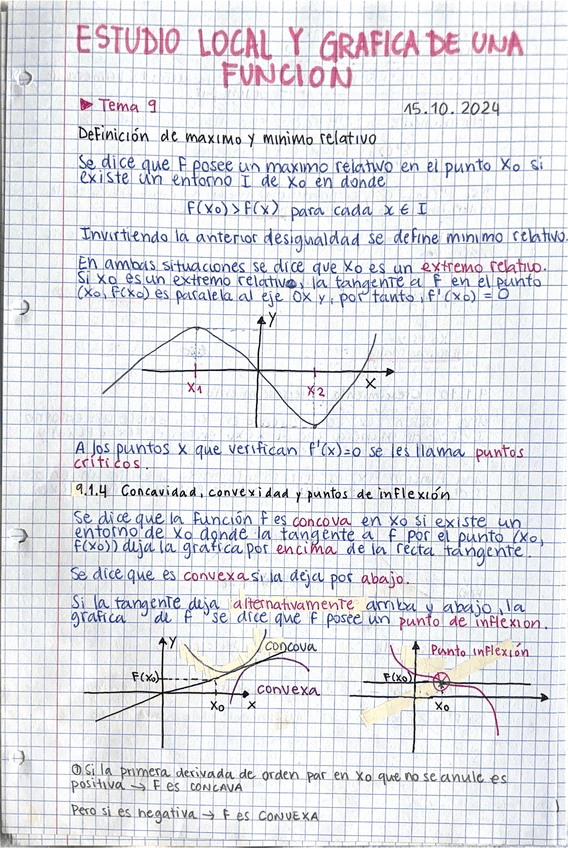 ESTUDIO LOCAL Y GRAFICA DE UNA
FUNCION
▶ Tema 9
15.10.2024
Definición de maximo y minimo relativo
Se dice que F posee un maximo relativo en el punto X₀ si
existe un entorno I de X₀ en donde
F(X₀) > F(x) para cada x ∈ I
Invirtiendo la anterior desigualdad se define minimo relativo.
En ambas situaciones se dice que X₀ es un extremo relativo.
Si X₀ es un extremo relativo, la tangente a F en el punto
(X₀, F(X₀) es paralela al eje OX y, por tanto, f'(X₀) = 0
Y
X1
X2
X
A los puntos X que verifican f'(x)=0 se les llama puntos
críticos.
9.1.4 Concavidad, convexidad y puntos de inflexión
Se dice que la función F es concova en X₀ si existe un
entorno de X₀ donde la tangente a F por el punto (X₀,
F(X₀)) dija la grafica por encima de la recta tangente.
Se dice que es convexa si la deja por abajo.
Si la tangente deja alternativamente arriba y abajo, la
grafica de F se dice que F posee un punto de inflexion.
Y
Concova
F(X₀)
convexa
X₀
X
Punto inflexión
F(X₀)
X₀
① Si la primera derivada de orden par en X₀ que no se anule es
positiva → F es CONCAVA
Pero si es negativa → F es CONVEXA